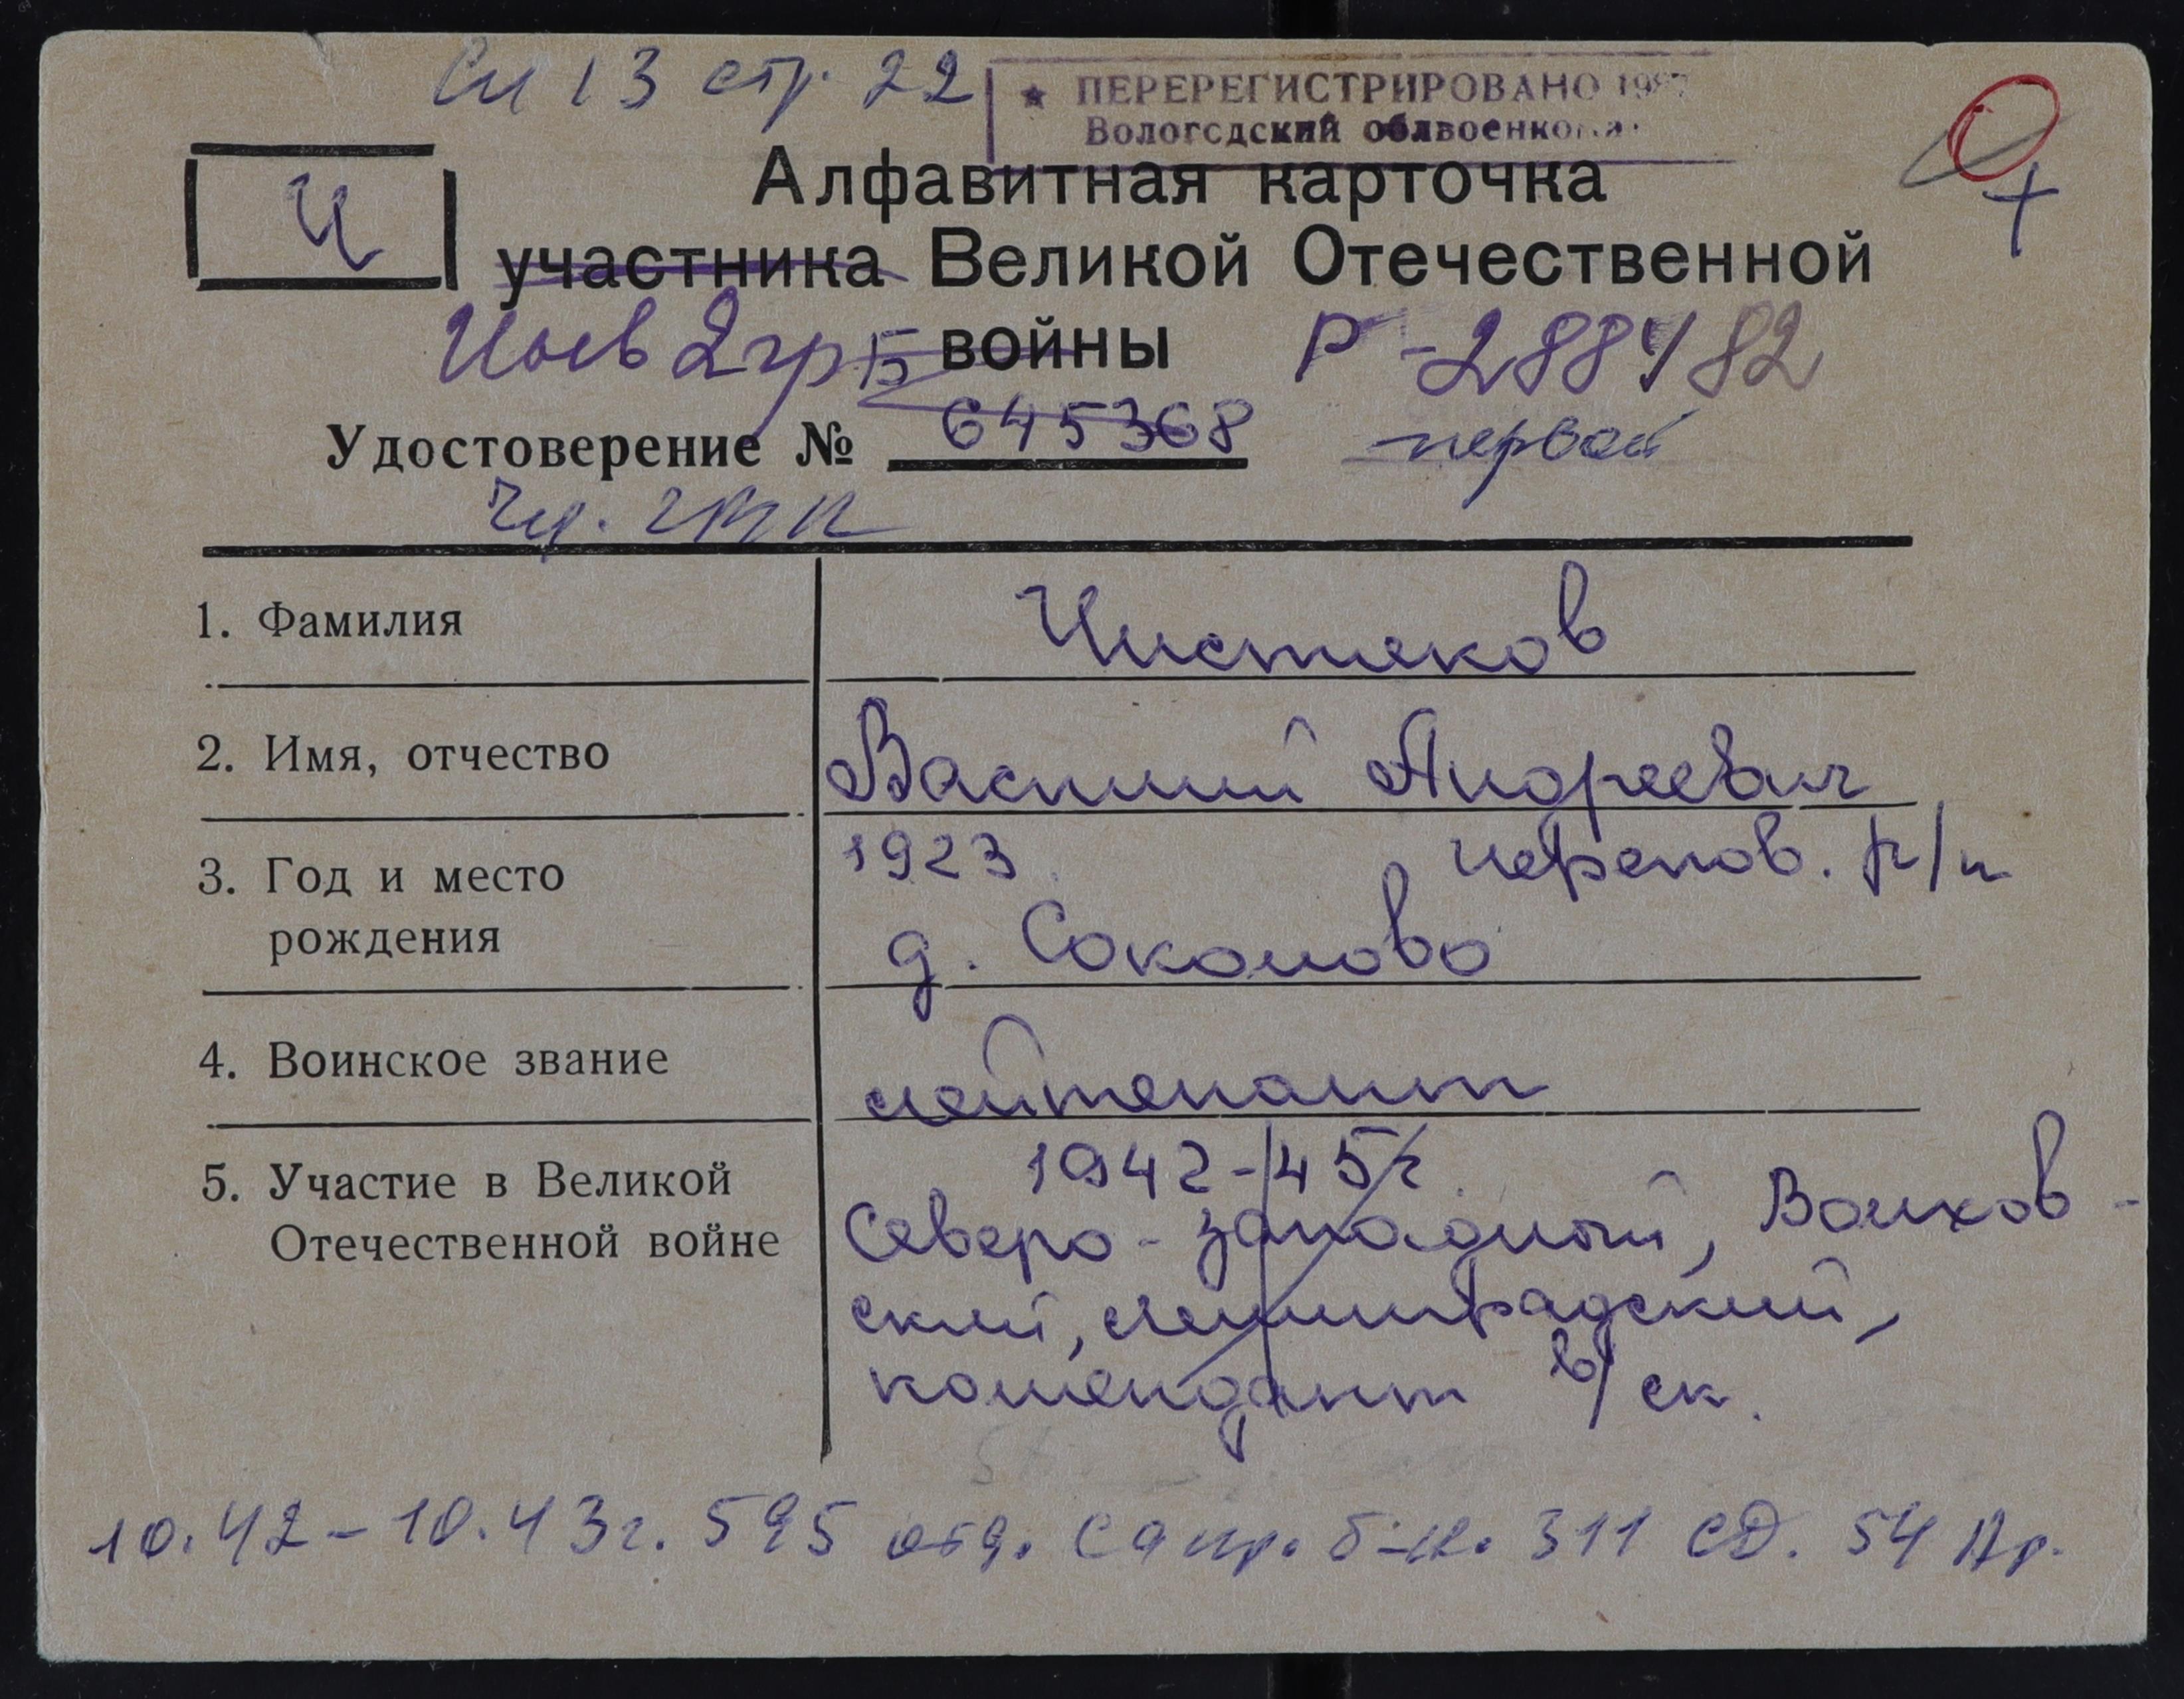 Сп 13 стр. 22
★ ПЕРЕРЕГИСТРИРОВАНО 198
Вологодский облвоенкома
Ч
Алфавитная карточка
участника Великой Отечественной
Инв 2 гр Б войны Р-288482
Удостоверение № 645368 первой
1. Фамилия Чистяков
2. Имя, отчество Василий Андреевич
3. Год и место 1923 Черепов. р/н
рождения д. Соколово
4. Воинское звание лейтенант
5. Участие в Великой 1942-45г.
Отечественной войне Северо-западный, Волхов-
ский, Ленинградский,
комендант в/ск.
10.42-10.43г. 595 отд. сапр. б-н. 311 СД. 54 Ар.